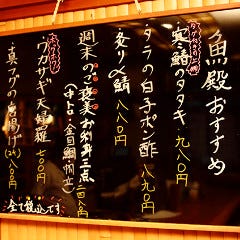 魚殿おすすめ
寒鰆のタタキ 九八〇円
タラの白子ポン酢 八九〇円
炙り〆鯖 八八〇円
週末のご褒美★お刺身三点
(中とろ・金目鯛・帆立) 二四八〇円
ワカサギ天婦羅 七〇〇円
真フグの唐揚げ(2ヶ) 八八〇円
全て税込です